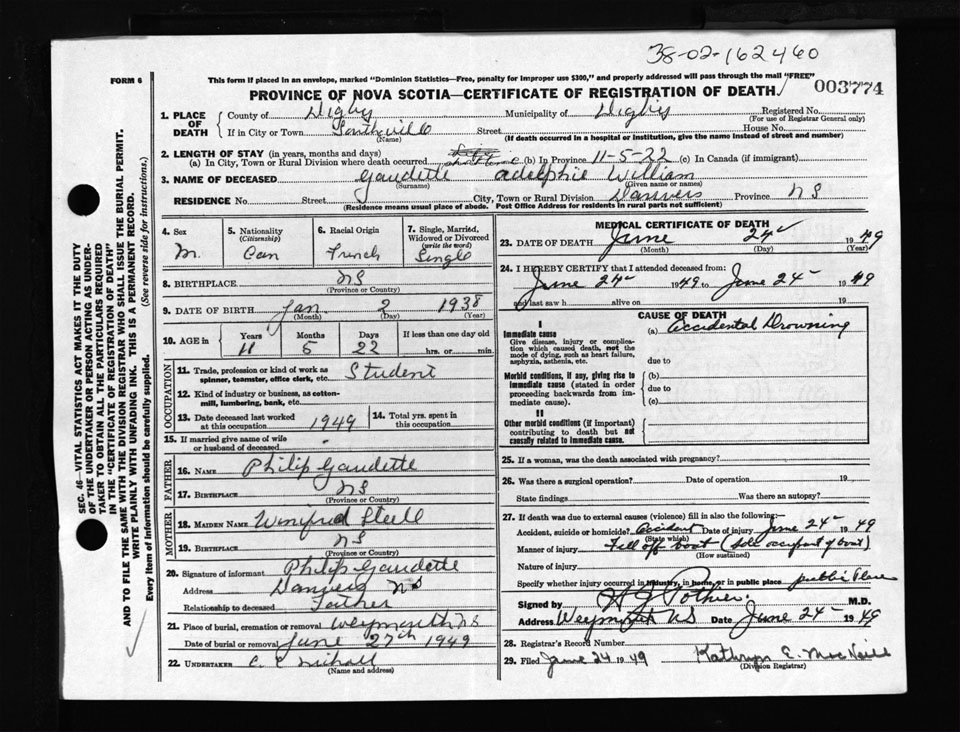 38-02-162460
FORM 6
This form if placed in an envelope, marked "Dominion Statistics—Free, penalty for improper use $300," and properly addressed will pass through the mail "FREE"
003774
PROVINCE OF NOVA SCOTIA—CERTIFICATE OF REGISTRATION OF DEATH
1. PLACE OF DEATH
County of Digby Municipality of Digby Registered No.
(For use of Registrar General only)
If in City or Town Southville Street House No.
(Name) (If death occurred in a hospital or institution, give the name instead of street and number)
2. LENGTH OF STAY (in years, months and days)
(a) In City, Town or Rural Division where death occurred (b) In Province 11-5-22 (c) In Canada (if immigrant)
3. NAME OF DECEASED Gaudette Adelphie William
(Surname) (Given name or names)
RESIDENCE No. Street City, Town or Rural Division Danvers Province NS
(Residence means usual place of abode. Post Office Address for residents in rural parts not sufficient)
4. Sex M.
5. Nationality (Citizenship) Can
6. Racial Origin French
7. Single, Married, Widowed or Divorced (write the word) Single
8. BIRTHPLACE NS
(Province or Country)
9. DATE OF BIRTH Jan 2 1938
(Month) (Day) (Year)
10. AGE in Years Months Days If less than one day old
11 5 22 hrs. or min.
OCCUPATION
11. Trade, profession or kind of work as spinner, teamster, office clerk, etc. Student
12. Kind of industry or business, as cotton-mill, lumbering, bank, etc.
13. Date deceased last worked at this occupation 1949
14. Total yrs. spent in this occupation
15. If married give name of wife or husband of deceased
FATHER
16. NAME Philip Gaudette
17. BIRTHPLACE NS
(Province or Country)
MOTHER
18. MAIDEN NAME Winifred Steele
19. BIRTHPLACE NS
(Province or Country)
20. Signature of informant Philip Gaudette
Address Danvers NS
Relationship to deceased Father
21. Place of burial, cremation or removal Weymouth NS
Date of burial or removal June 27th 1949
22. UNDERTAKER
(Name and address)
MEDICAL CERTIFICATE OF DEATH
23. DATE OF DEATH June 24 1949
(Month) (Day) (Year)
24. I HEREBY CERTIFY that I attended deceased from:
June 24 1949 to June 24 1949
and last saw h alive on 19
CAUSE OF DEATH
I
Immediate cause
Give disease, injury or complication which caused death, not the mode of dying, such as heart failure, asphyxia, asthenia, etc.
(a) Accidental Drowning
due to
Morbid conditions, if any, giving rise to immediate cause (stated in order proceeding backwards from immediate cause).
(b)
due to
(c)
II
Other morbid conditions (if important) contributing to death but not causally related to immediate cause.
25. If a woman, was the death associated with pregnancy?
26. Was there a surgical operation? Date of operation 19
State findings Was there an autopsy?
27. If death was due to external causes (violence) fill in also the following:—
Accident, suicide or homicide? Accident Date of injury June 24 1949
(State which)
Manner of injury Fell off boat (sole occupant of boat)
(How sustained)
Nature of injury
Specify whether injury occurred in industry, in home, or in public place public place
Signed by H J Pothier M.D.
Address Weymouth NS Date June 24 1949
28. Registrar's Record Number
29. Filed June 24 1949 Kathryn E. MacNeill
(Division Registrar)
SEC. 46—VITAL STATISTICS ACT MAKES IT THE DUTY
OF THE UNDERTAKER OR PERSON ACTING AS UNDER-
TAKER TO OBTAIN ALL THE PARTICULARS REQUIRED
IN THE "CERTIFICATE OF REGISTRATION OF DEATH"
AND TO FILE THE SAME WITH THE DIVISION REGISTRAR WHO SHALL ISSUE THE BURIAL PERMIT.
WRITE PLAINLY WITH UNFADING INK. THIS IS A PERMANENT RECORD.
Every item of information should be carefully supplied. (See reverse side for instructions.)